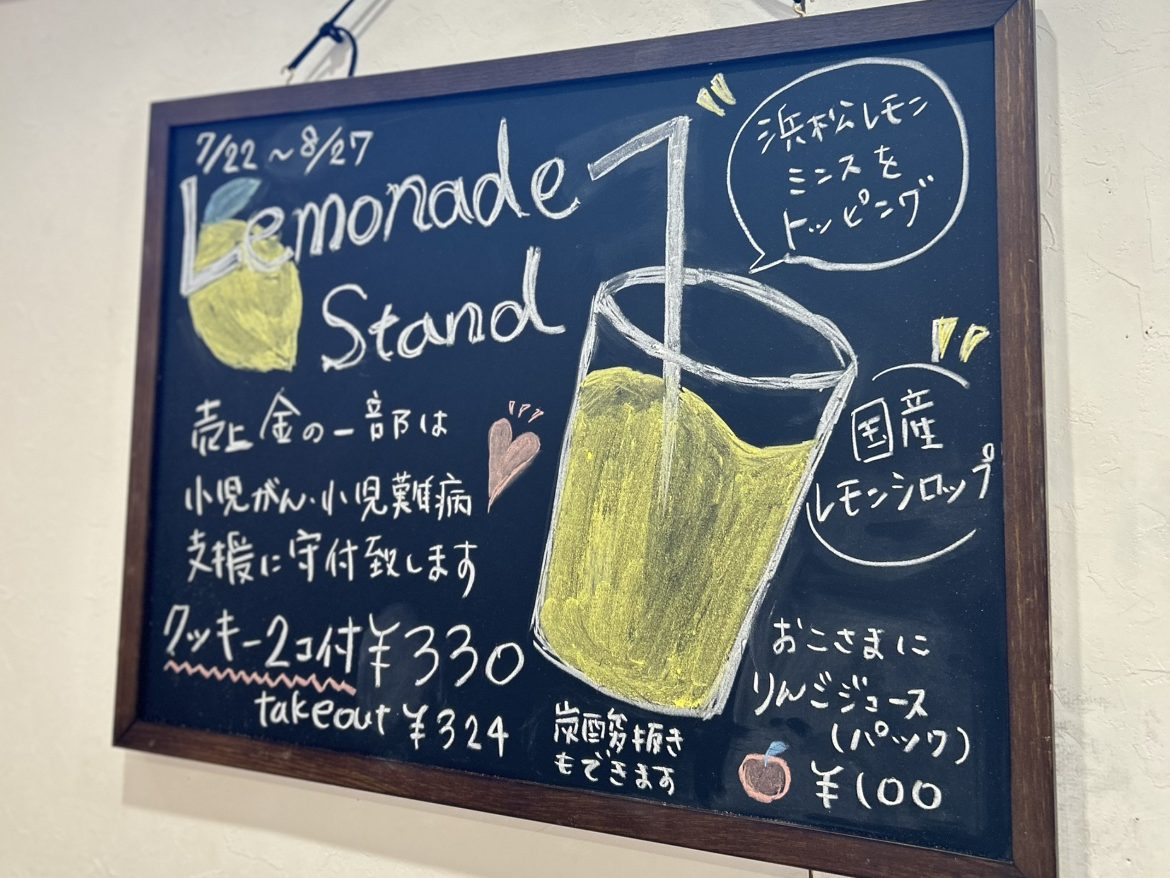 7/22〜8/27
Lemonade
Stand
浜松レモン
ミンスを
トッピング
国産
レモンシロップ
売上金の一部は
小児がん・小児難病
支援に寄付致します
クッキー2コ付¥330
takeout ¥324
炭酸多抜き
もできます
おこさまに
りんごジュース
(パック)
¥100